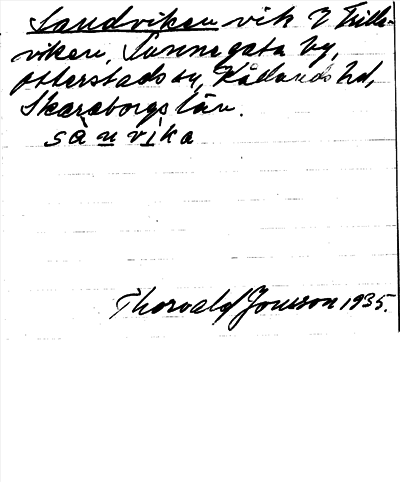 Sandviken vik i Trille-
viken, Sunnegata by,
Otterstads sn, Kållands hd,
Skaraborgs län.
sà n vi̩ka
Thorvald Jonsson 1935.